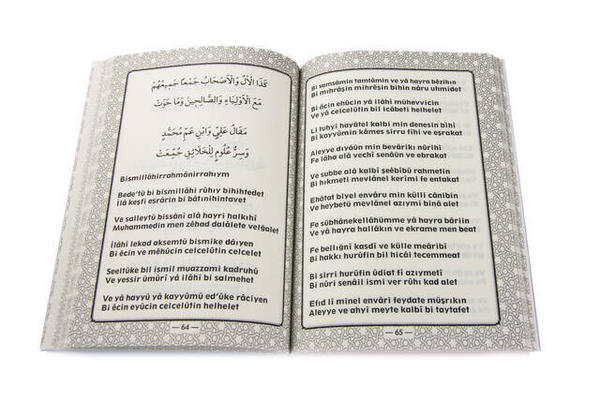 كَذَا الْاٰلِ وَالْاَصْحَابِ جَمْعًا جَمِيعُهُمْ
مَعَ الْاَوْلِيَاءِ وَالصَّالِحِينَ وَمَا حَوَتْ
مَقَالُ عَلِيٍّ وَابْنِ عَمِّ مُحَمَّدٍ
وَسِرُّ عُلُومٍ لِلْخَلَائِقِ جُمِّعَتْ
Bismillâhirrahmânirrahıym
Bede'tü bi bismillâhi rûhıy bihihtedet
İlâ keşfi esrârin bi bâtınihintavet
Ve salleytü bissânî alâ hayri halkıhî
Muhammedin men zêhad dalâlete velğalet
İlâhî lekad aksemtü bismike dâıyen
Bi êcin ve mêhûcin celcelûtin helhelet
Seeltüke bil ismil muazzami kadruhû
Ve yessir ümûrî yâ ilâhî bi salmehet
Ve yâ hayyü yâ kayyûmü ed'ûke râciyen
Bi êcin eyûcin celcelûtin helhelet
— 64 —
Bi samsâmin tamtâmin ve yâ hayra bêzihın
Bi mıhrâşin mihrêşin bihin nâru uhmidet
Bi êcin ehûcin yâ ilâhî mühevvicin
Ve yâ celcelûtin bil icâbeti helhelet
Li tuhyî hayâtel kalbi min denesin bihî
Bi kayyûmin kâmes sirru fîhi ve eşrakat
Aleyye dıyâün min bevârikı nûrihî
Fe lâha alâ vechî senâün ve ebrakat
Ve subbe alâ kalbî şeêbîbü rahmetin
Bi hıkmeti mevlânel kerîmi fe entakat
Ehâtat biyel envâru min külli cânibin
Ve heybetü mevlânel azıymi binâ alet
Fe sübhânekellâhümme yâ hayra bâriin
Ve yâ hayra hallâkın ve ekrame men beat
Fe belliğnî kasdî ve külle meâribî
Bi hakkı hurûfin bil hicâi tecemmeat
Bi sirri hurûfin ûdiat fî azıymetî
Bi nûri senâil ismi ver rûhı kad alet
Efid lî minel envâri feydate müşrıkın
Aleyye ve ahyi meyte kalbî bi taytafet
— 65 —